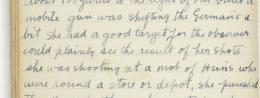 about 100 yards to the right of our billet a
mobile gun was shifting the Germans a
bit she had a good target for the observer
could plainly see the result of her shots
she was shooting at a mob of Huns who
were round a store or depot, she punished